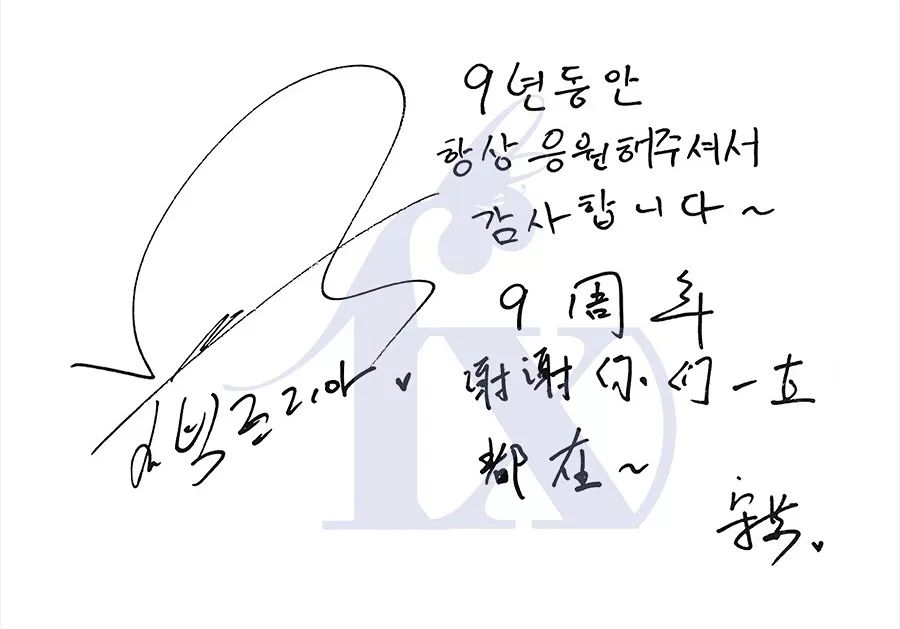 9년동안
항상 응원해주셔서
감사합니다~
9周年
谢谢你们一直
都在~
빅토리아 ♥
宋茜 ♥
fx